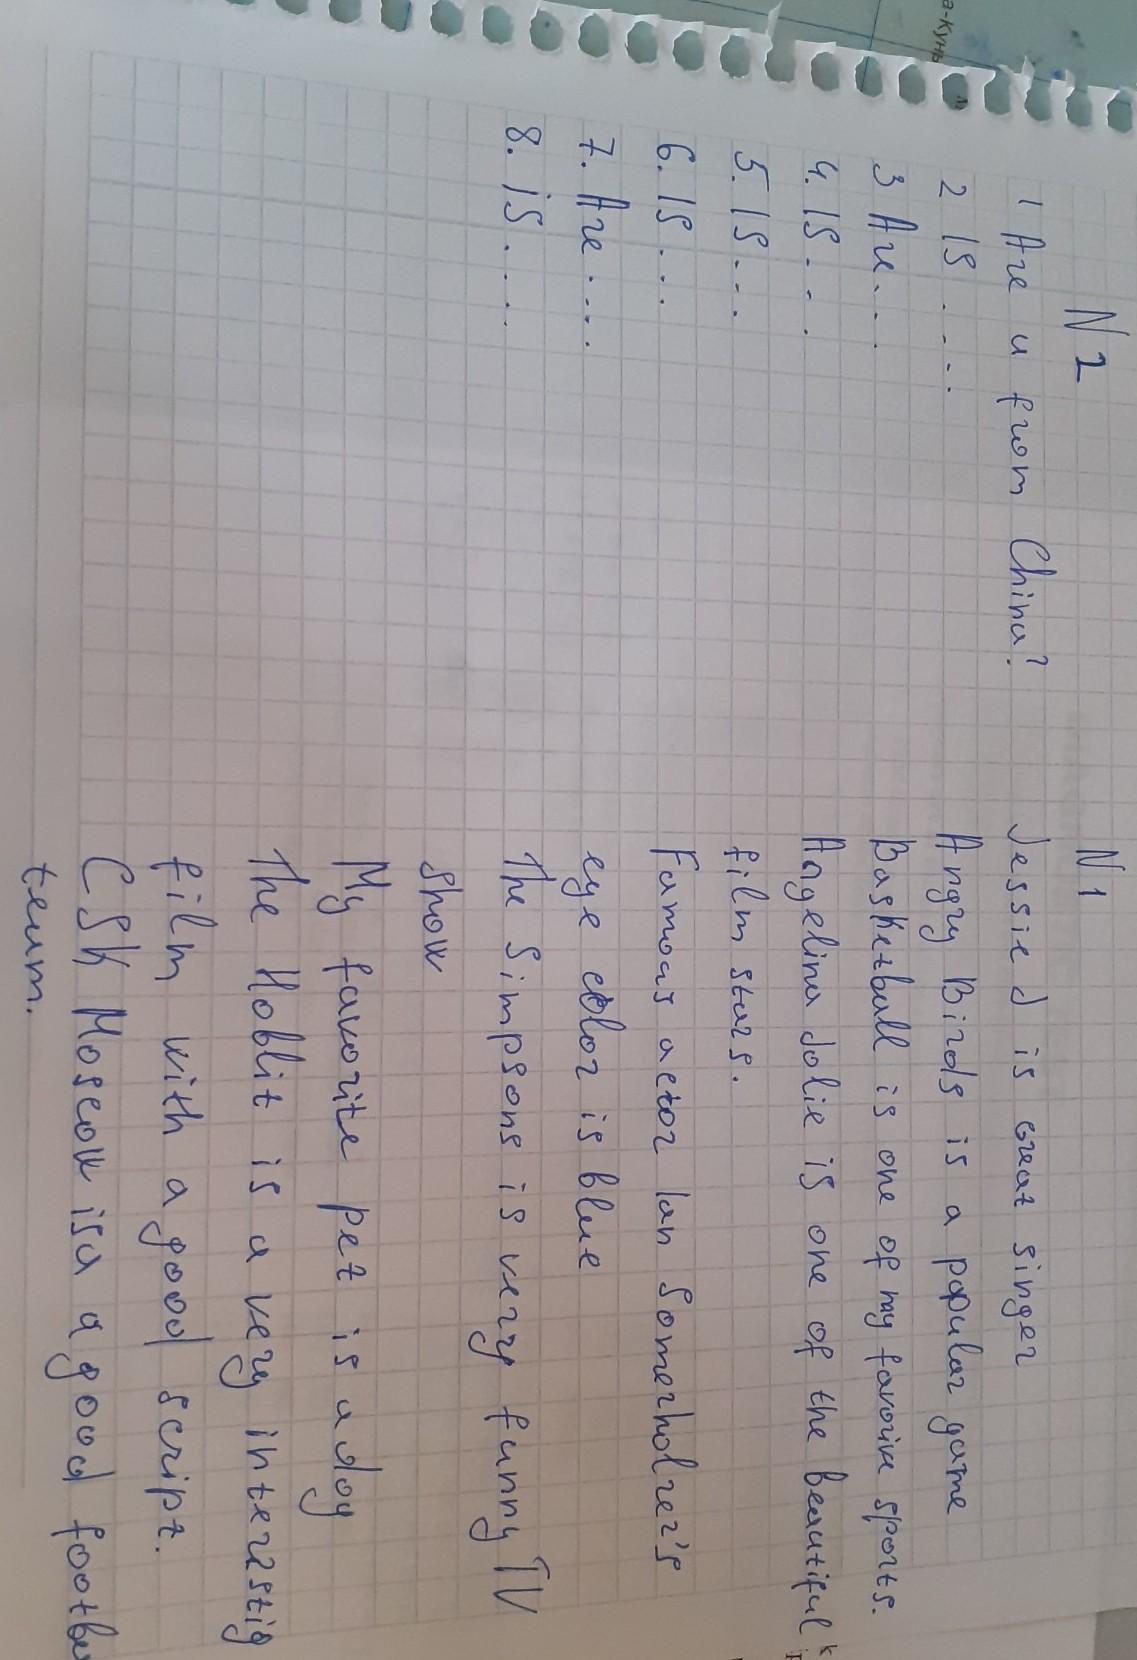 N2
1 Are u from China?
2 is . . . .
3 Are. . .
4. is . . .
5. is . . .
6. is . . .
7. Are . . . .
8. is . . . .
N1
Jessie J is great singer
Angry Birds is a popular game
Basketball is one of my favorite sports.
Angelina Jolie is one of the beautiful
film stars.
Famous actor Ian Somerholrer's
eye color is blue
The Simpsons is very funny TV
Show
My favorite pet is a dog
The Hoblit is a very interestig
film with a good script.
CSK Moscow is a a good footba
team.
а-кунь